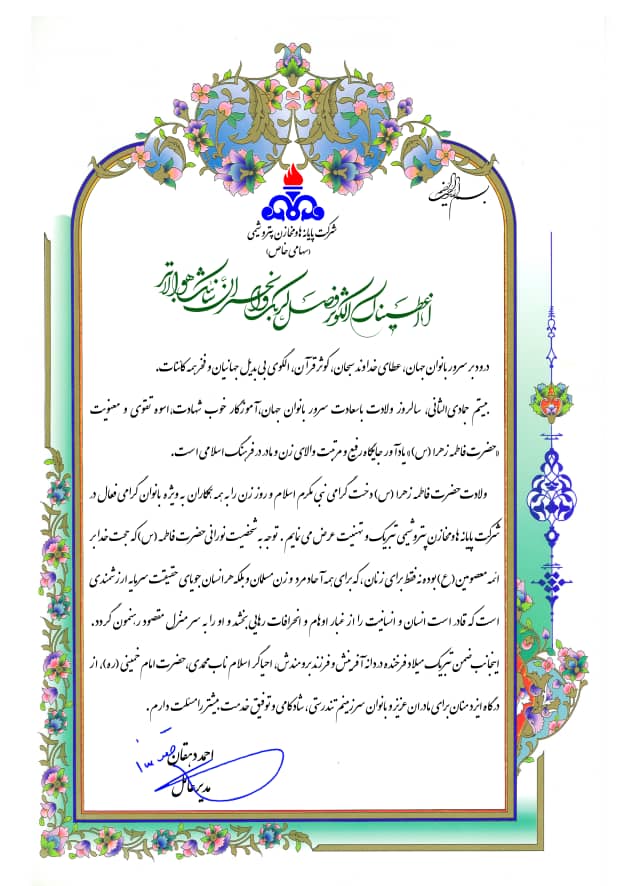 بسم الله الرحمن الرحیم
شرکت پایانه ها و مخازن پتروشیمی
(سهامی خاص)
انا اعطیناک الکوثر فصل لربک وانحر ان شانئک هو الابتر
درود بر سرور بانوان جهان، عطای خداوند سبحان، کوثر قرآن، الگوی بی بدیل جهانیان و فخر همه کائنات.
بیستم جمادی الثانی، سالروز ولادت باسعادت سرور بانوان جهان، آموزگار خوب شهادت، اسوه تقوی و معنویت
«حضرت فاطمه زهرا (س)» یادآور جایگاه رفیع و مرتبت والای زن و مادر در فرهنگ اسلامی است.
ولادت حضرت فاطمه زهرا (س) دخت گرامی نبی مکرم اسلام و روز زن را به همه همکاران به ویژه بانوان گرامی فعال در
شرکت پایانه ها و مخازن پتروشیمی تبریک و تهنیت عرض می نمایم . توجه به شخصیت نورانی حضرت فاطمه (س) که حجت خدا بر
ائمه معصومین (ع) بوده نه فقط برای زنان، که برای همه آحاد مرد و زن مسلمان و بلکه هر انسان جویای حقیقت سرمایه ارزشمندی
است که قادر است انسان و انسانیت را از غبار اوهام و انحرافات رهایی بخشد و او را به سر منزل مقصود رهنمون گردد.
اینجانب ضمن تبریک میلاد فرخنده دردانه آفرینش و فرزند برومندش، احیاگر اسلام ناب محمدی، حضرت امام خمینی (ره)، از
درگاه ایزد منان برای مادران عزیز و بانوان سرزمینم تندرستی، شادکامی و توفیق خدمت بیشتر را مسئلت دارم.
احمد دهقان
مدیرعامل